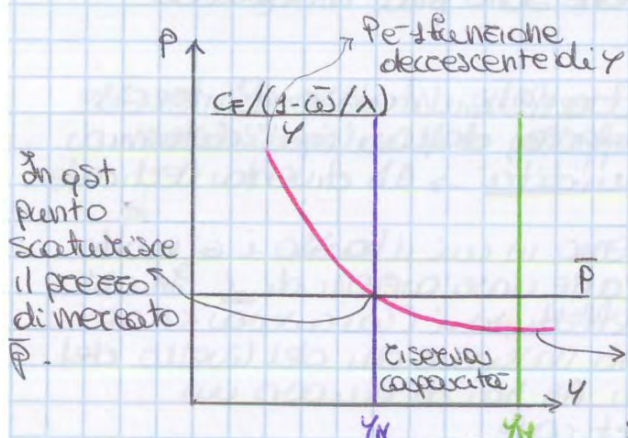 P
P è 1 funzione
decrescente di Y
CF/(1-ω̄/λ)
Y
In qst
punto
scaturisce
il prezzo
di mercato
P̄.
P̄
riserva
capacità
Y
YN